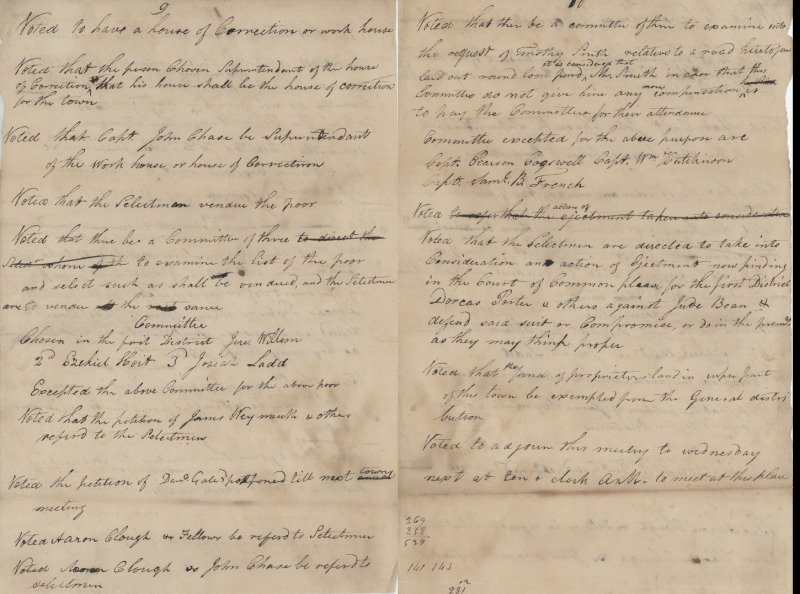 9
Voted to have a house of Correction or work house
Voted that the person Chosen Superintendent of the house
of Correction, that his house shall be the house of correction
for the town
Voted that Capt. John Chase be Superintendant
of the Work house or house of Correction
Voted that the Selectmen vendue the poor
Voted that there be a Committee of three to direct the
to examine the list of the poor
and select such as shall be vendued, and the Selectmen
are to vendue the same
Committee
Chosen in the first District Jere. Wilson
2nd Ezekiel Hoit 3 Josiah Ladd
Excepted the above Committee for the above poor
Voted that the petition of James Weymouth & others
referd to the Selectmen
Voted the petition of Danl. Gale postponed till next annual town
meeting
Voted Aaron Clough vs Fellows be referd to Selectmen
Voted Aaron Clough vs John Chase be referd to
selectmen
Voted that ther be a committe of three to examine into
the request of Timothy Smith relative to a road heretofore
laid out round long pond, it is considered that Mr. Smith in case that this
Committee do not give him any more compensation is
to pay the Committee for their attendance
Committee excepted for the above purpose are
Capt. Pearson Cogswell Capt. Wm Hutchinson
Capt. Saml. B. French
Voted to refer that the action of ejectment taken into consideration
Voted that the Selectmen are directed to take into
Consideration an action of Ejectment now pending
in the Court of Common pleas for the first District
Dorcas Porter & others against Jude Bean &
defend said suit or Compromise, or do in the premises
as they may think proper
Voted that the fund of proprietors land in upper part
of this town be exempted from the General distri
bution
Voted to adjourn this meeting to wednesday
next at ten o clock A.M. to meet at this place
269
258
529
141 143
281